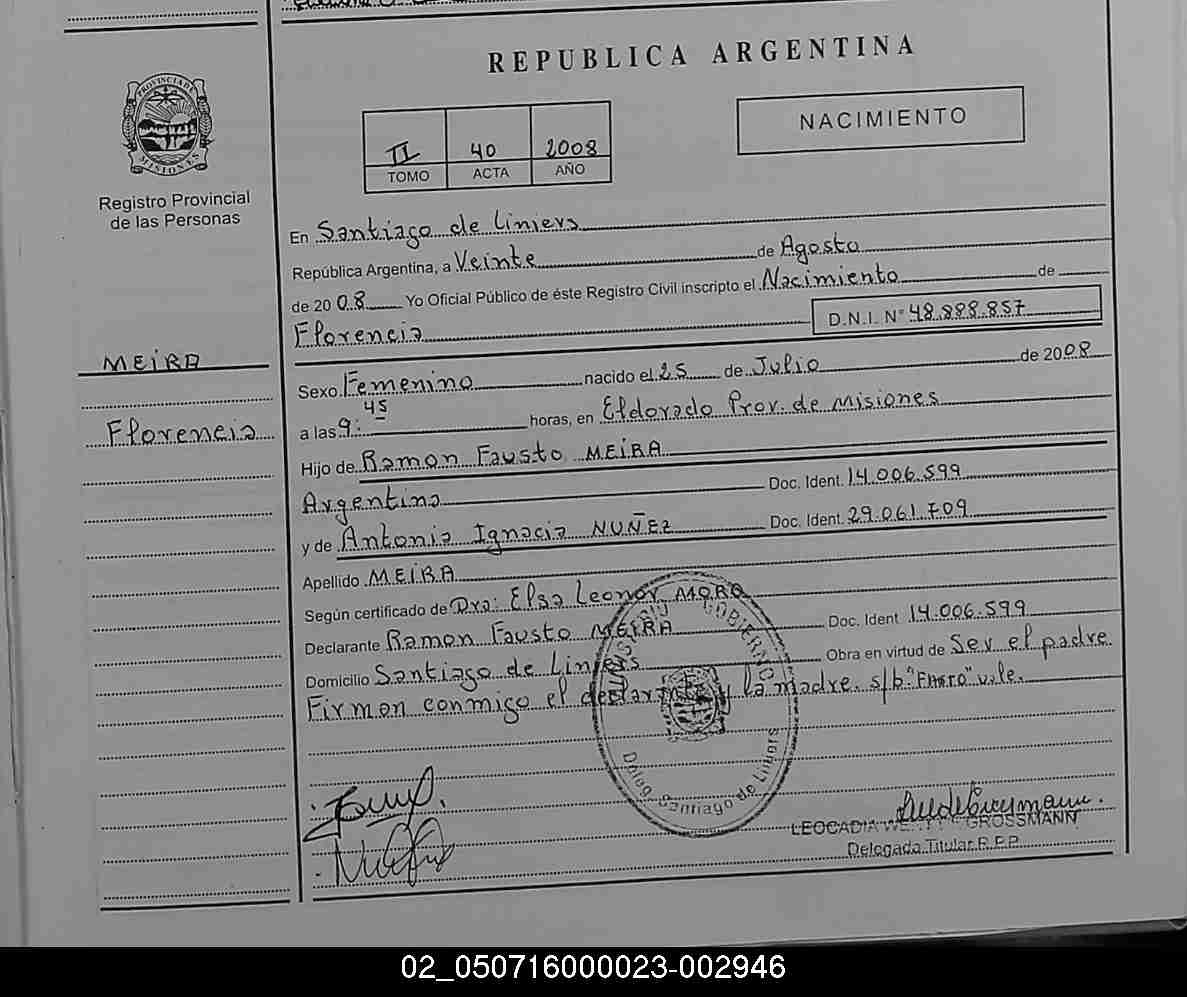 REPUBLICA ARGENTINA
PROVINCIA DE MISIONES
Registro Provincial
de las Personas
II 40 2008
TOMO ACTA AÑO
NACIMIENTO
En Santiago de Liniers
República Argentina, a Veinte de Agosto
de 2008 Yo Oficial Público de éste Registro Civil inscripto el Nacimiento de
Florencia D.N.I. N° 48.888.857
MEIRA
Florencia
Sexo Femenino nacido el 25 de Julio de 2008
a las 9:45 horas, en Eldorado Prov. de Misiones
Hijo de Ramon Fausto MEIRA
Argentina Doc. Ident. 14.006.599
y de Antonia Ignacia NUÑEZ Doc. Ident. 29.061.709
Apellido MEIRA
Según certificado de Dra: Elsa Leonor MORO
Declarante Ramon Fausto MEIRA Doc. Ident 14.006.599
Domicilio Santiago de Liniers Obra en virtud de Ser el padre
Firman conmigo el declarante y la madre. s/b: vale.
GOBIERNO
Deleg. Santiago de Liniers
LEOCADIA GROSSMANN
Delegada Titular R.P.P.
02_050716000023-002946